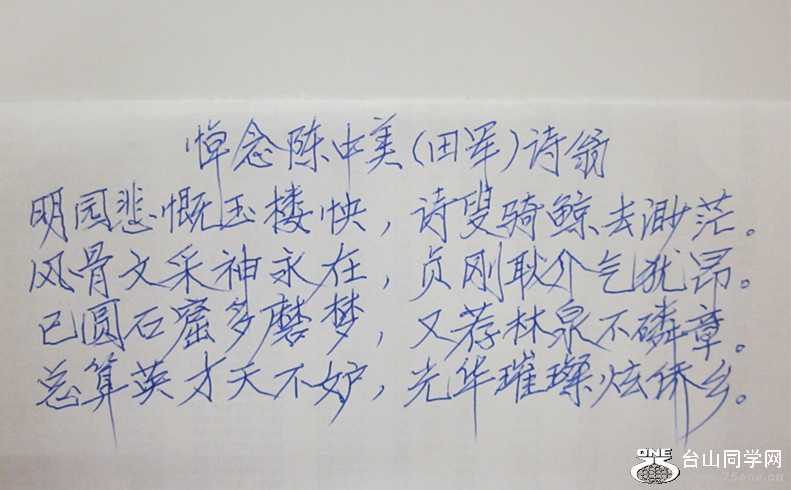 悼念陈中美(田军)诗翁
明园悲慨玉楼怏，诗叟骑鲸去渺茫。
风骨文采神永在，贞刚耿介气犹昂。
已圆石窟多磨梦，又荐林泉不磷章。
总算英才天不妒，光华璀璨炫侨乡。
ONE 台山同学网
www.75one.cn